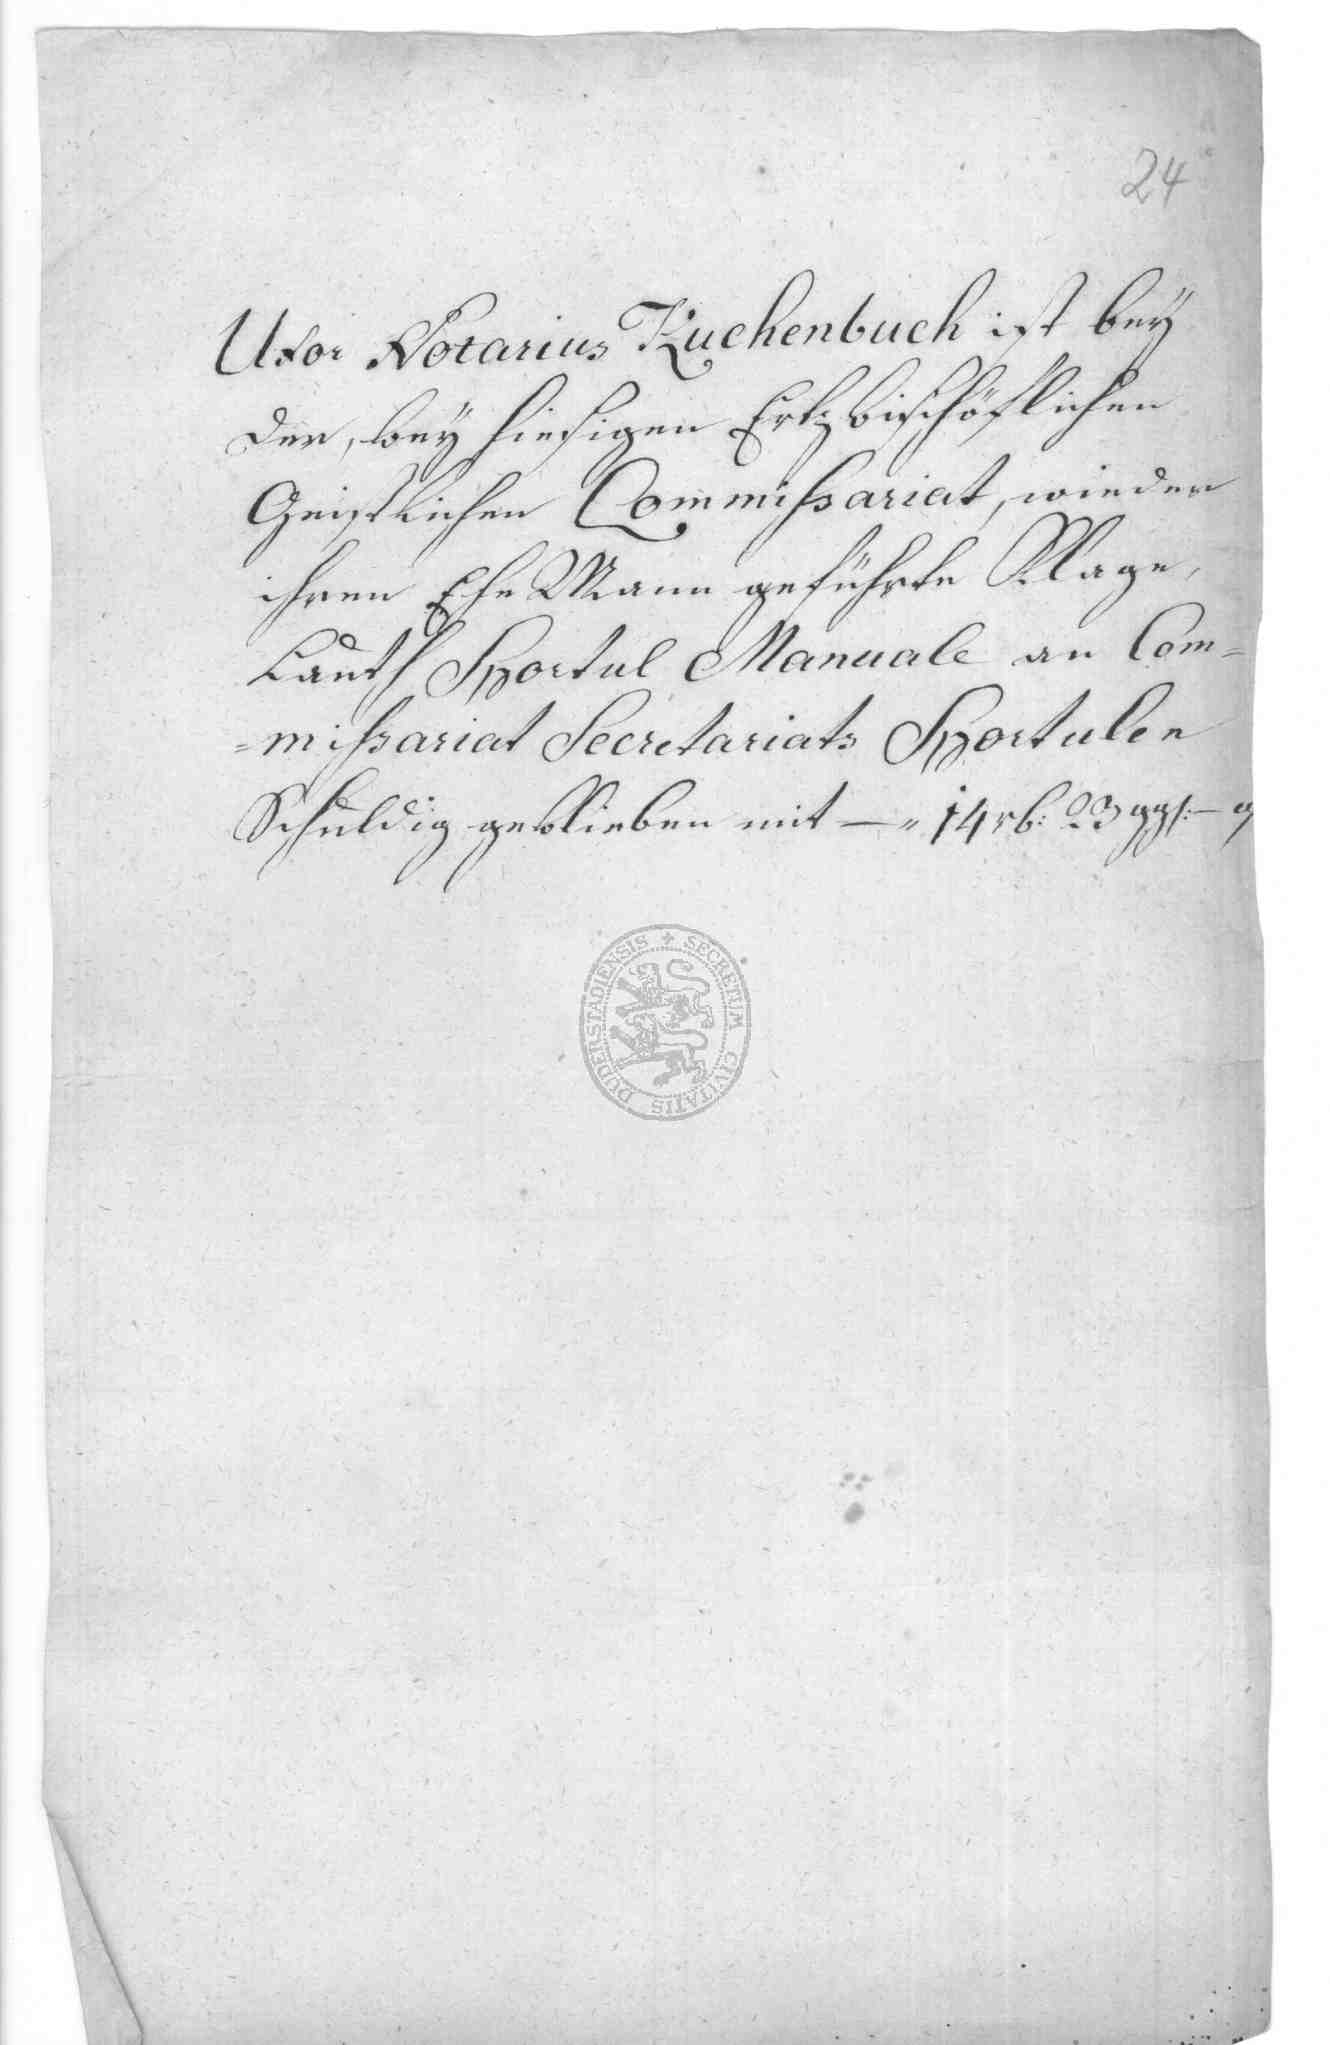 24
Uxor Notarius Kuchenbuch ist bey
der, bey hiesigen Ertzbischöflichen
Geistlichen Commissariat, wieder
ihren Ehe Mann geführte Klage,
Lauth Sportul Manuale an Com=
=missariat Secretariats Sportulen
Schuldig geblieben mit — „ 14 rh: 23 ggl: —
SECRETUM CIVITATIS DUDERSTADIENSIS